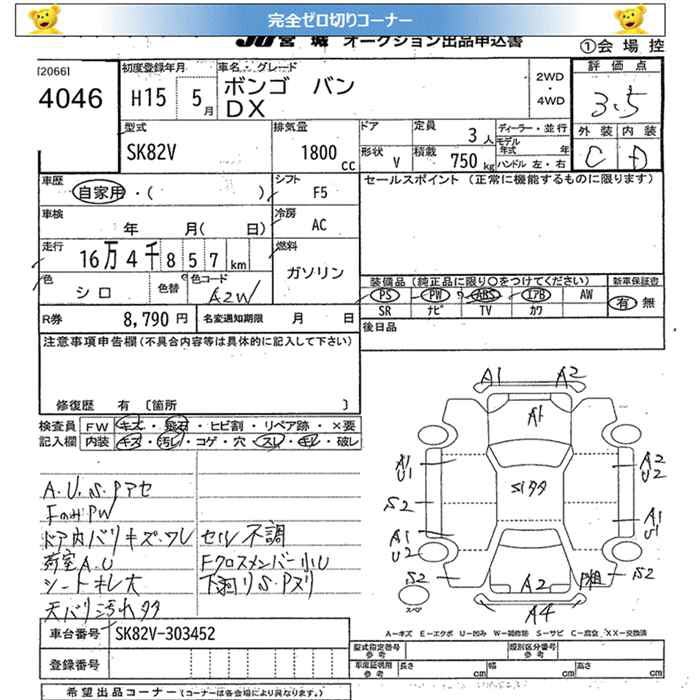 完全ゼロ切りコーナー
JU宮城 オークション出品申込書
①会場控
[2066]
4046
初度登録年月
H15 5月
車名・グレード
ボンゴ バン
DX
2WD
・
4WD
評価点
3.5
外装 内装
C D
型式
SK82V
排気量
1800 cc
ドア
形状 V
定員 3人
積載 750 kg
ディーラー・並行
モデル年式 年
ハンドル 左・右
車歴
自家用・( )
シフト
F5
セールスポイント (正常に機能するものに限ります)
車検
年 月( 日)
冷房
AC
走行
16万4千857km
燃料
ガソリン
色
シロ
色替
色コード
A2W
装備品(純正品に限り○をつけてください)
PS PW ABS エアB AW
SR ナビ TV カワ
新車保証書
有 無
R券 8,790円
名変通知期限 月 日
後日品
注意事項申告欄(不具合内容等は具体的に記入して下さい)
修復歴 有 〔箇所 〕
検査員
記入欄
FW キズ・飛石・ヒビ割・リペア跡・×要
内装 キズ・汚レ・コゲ・穴・スレ・キレ・破レ
A.U.S.Pアセ
FのみPW
ドア内バリキズ・ワレ
荷室A.U
シートキレ大
天バリ汚れタタ
セル不調
Fクロスメンバー小U
下廻りS.Pヌリ
A1 A2
A1
A1
U1
S2
A1
U2
S2
S1タタ
A2
U2
A1
U1
P粗
S2
A2
A4
スペア
A-キズ E-エクボ U-凹み W-補修跡 S-サビ C-腐食 XX-交換済
車台番号 SK82V-303452
登録番号
型式指定番号
参考
類別区分番号
参考
車庫証明用
参考
長さ cm
幅 cm
高さ cm
希望出品コーナー(コーナーは各会場により異なります)